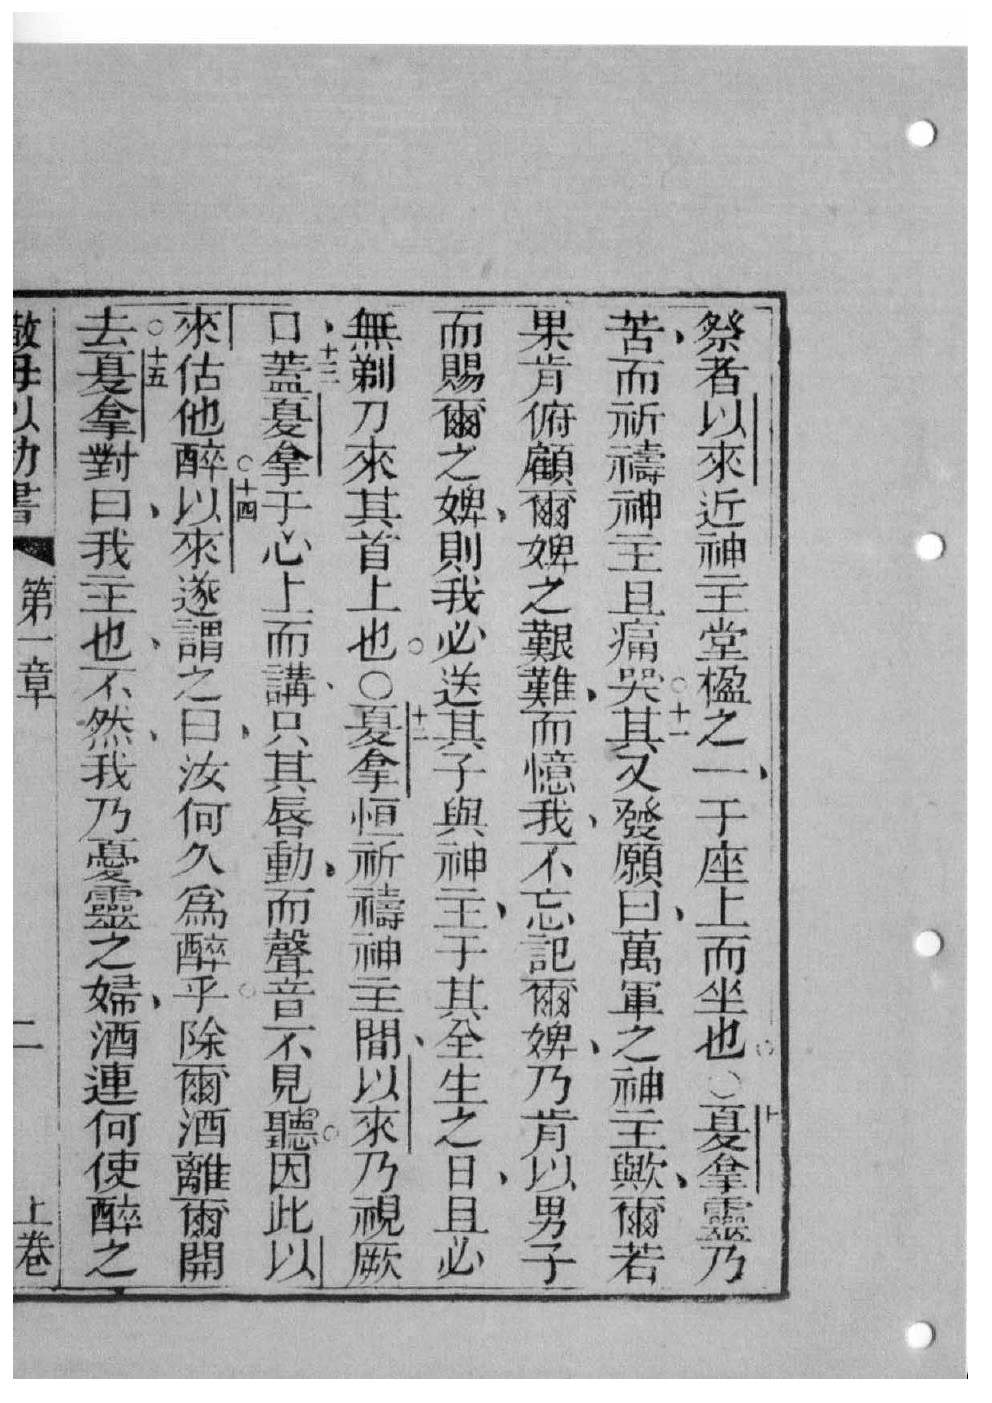 祭者以來近神主堂楹之一于座上而坐也。〇十夏拿靈乃
苦而祈禱神主且痛哭。十一其又發願曰萬軍之神主歟爾若
果肯俯顧爾婢之艱難而憶我不忘記爾婢乃肯以男子
而賜爾之婢則我必送其子與神主于其全生之日且必
無剃刀來其首上也。〇十二夏拿恒祈禱神主間以來乃視厥
口十三蓋夏拿于心上而講只其唇動而聲音不見聽。因此以
來估他醉。十四以來遂謂之曰汝何久為醉乎。除爾酒離爾開
去。十五夏拿對曰我主也不然我乃憂靈之婦酒連何使醉之
第一章 二 上卷